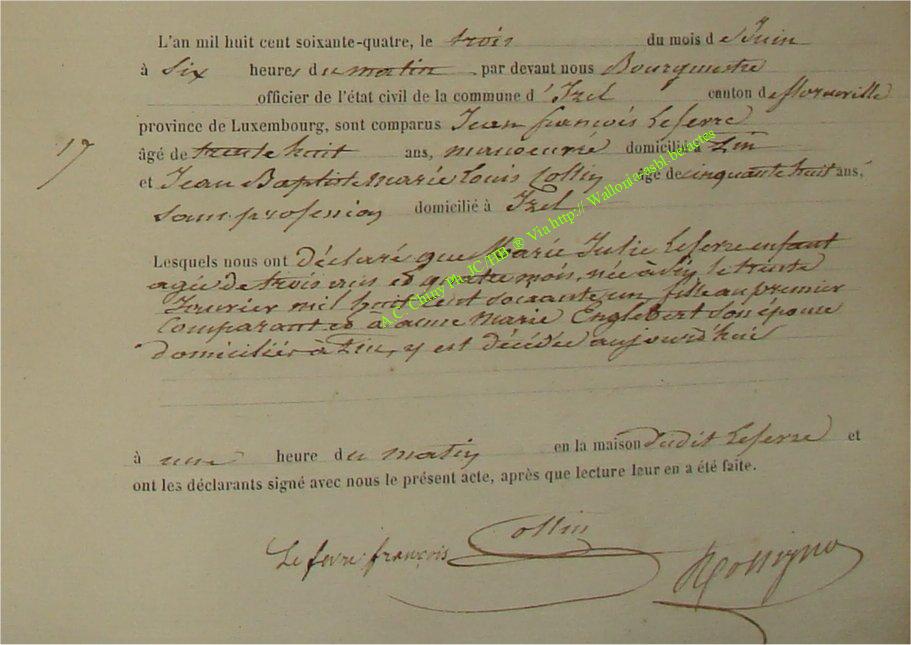 L'an mil huit cent soixante-quatre, le trois du mois de Juin
à six heures du matin par devant nous Bourgmestre
officier de l'état civil de la commune d'Izel canton de florenville
province de Luxembourg, sont comparus Jean françois Lefevre
17
âgé de trente huit ans, manoeuvre domicilié à
et Jean Baptiste Marie Louis Collin âgé de cinquante huit ans,
sans profession domicilié à Izel
Lesquels nous ont déclaré que Marie Julie Lefevre enfant
agée de trois ans et quatre mois, née à le trente
Janvier mil huit cent soixante un, fille au premier
Comparant et à Marie Englebert son épouse
domiciliés à y est décédée aujourd'hui
à une heure du matin en la maison dudit Lefevre et
ont les déclarants signé avec nous le présent acte, après que lecture leur en a été faite.
Lefevre françois Collin
A.C. Chiny Ph. JC/HB ® Via http:// Wallonia.asbl.be:actes